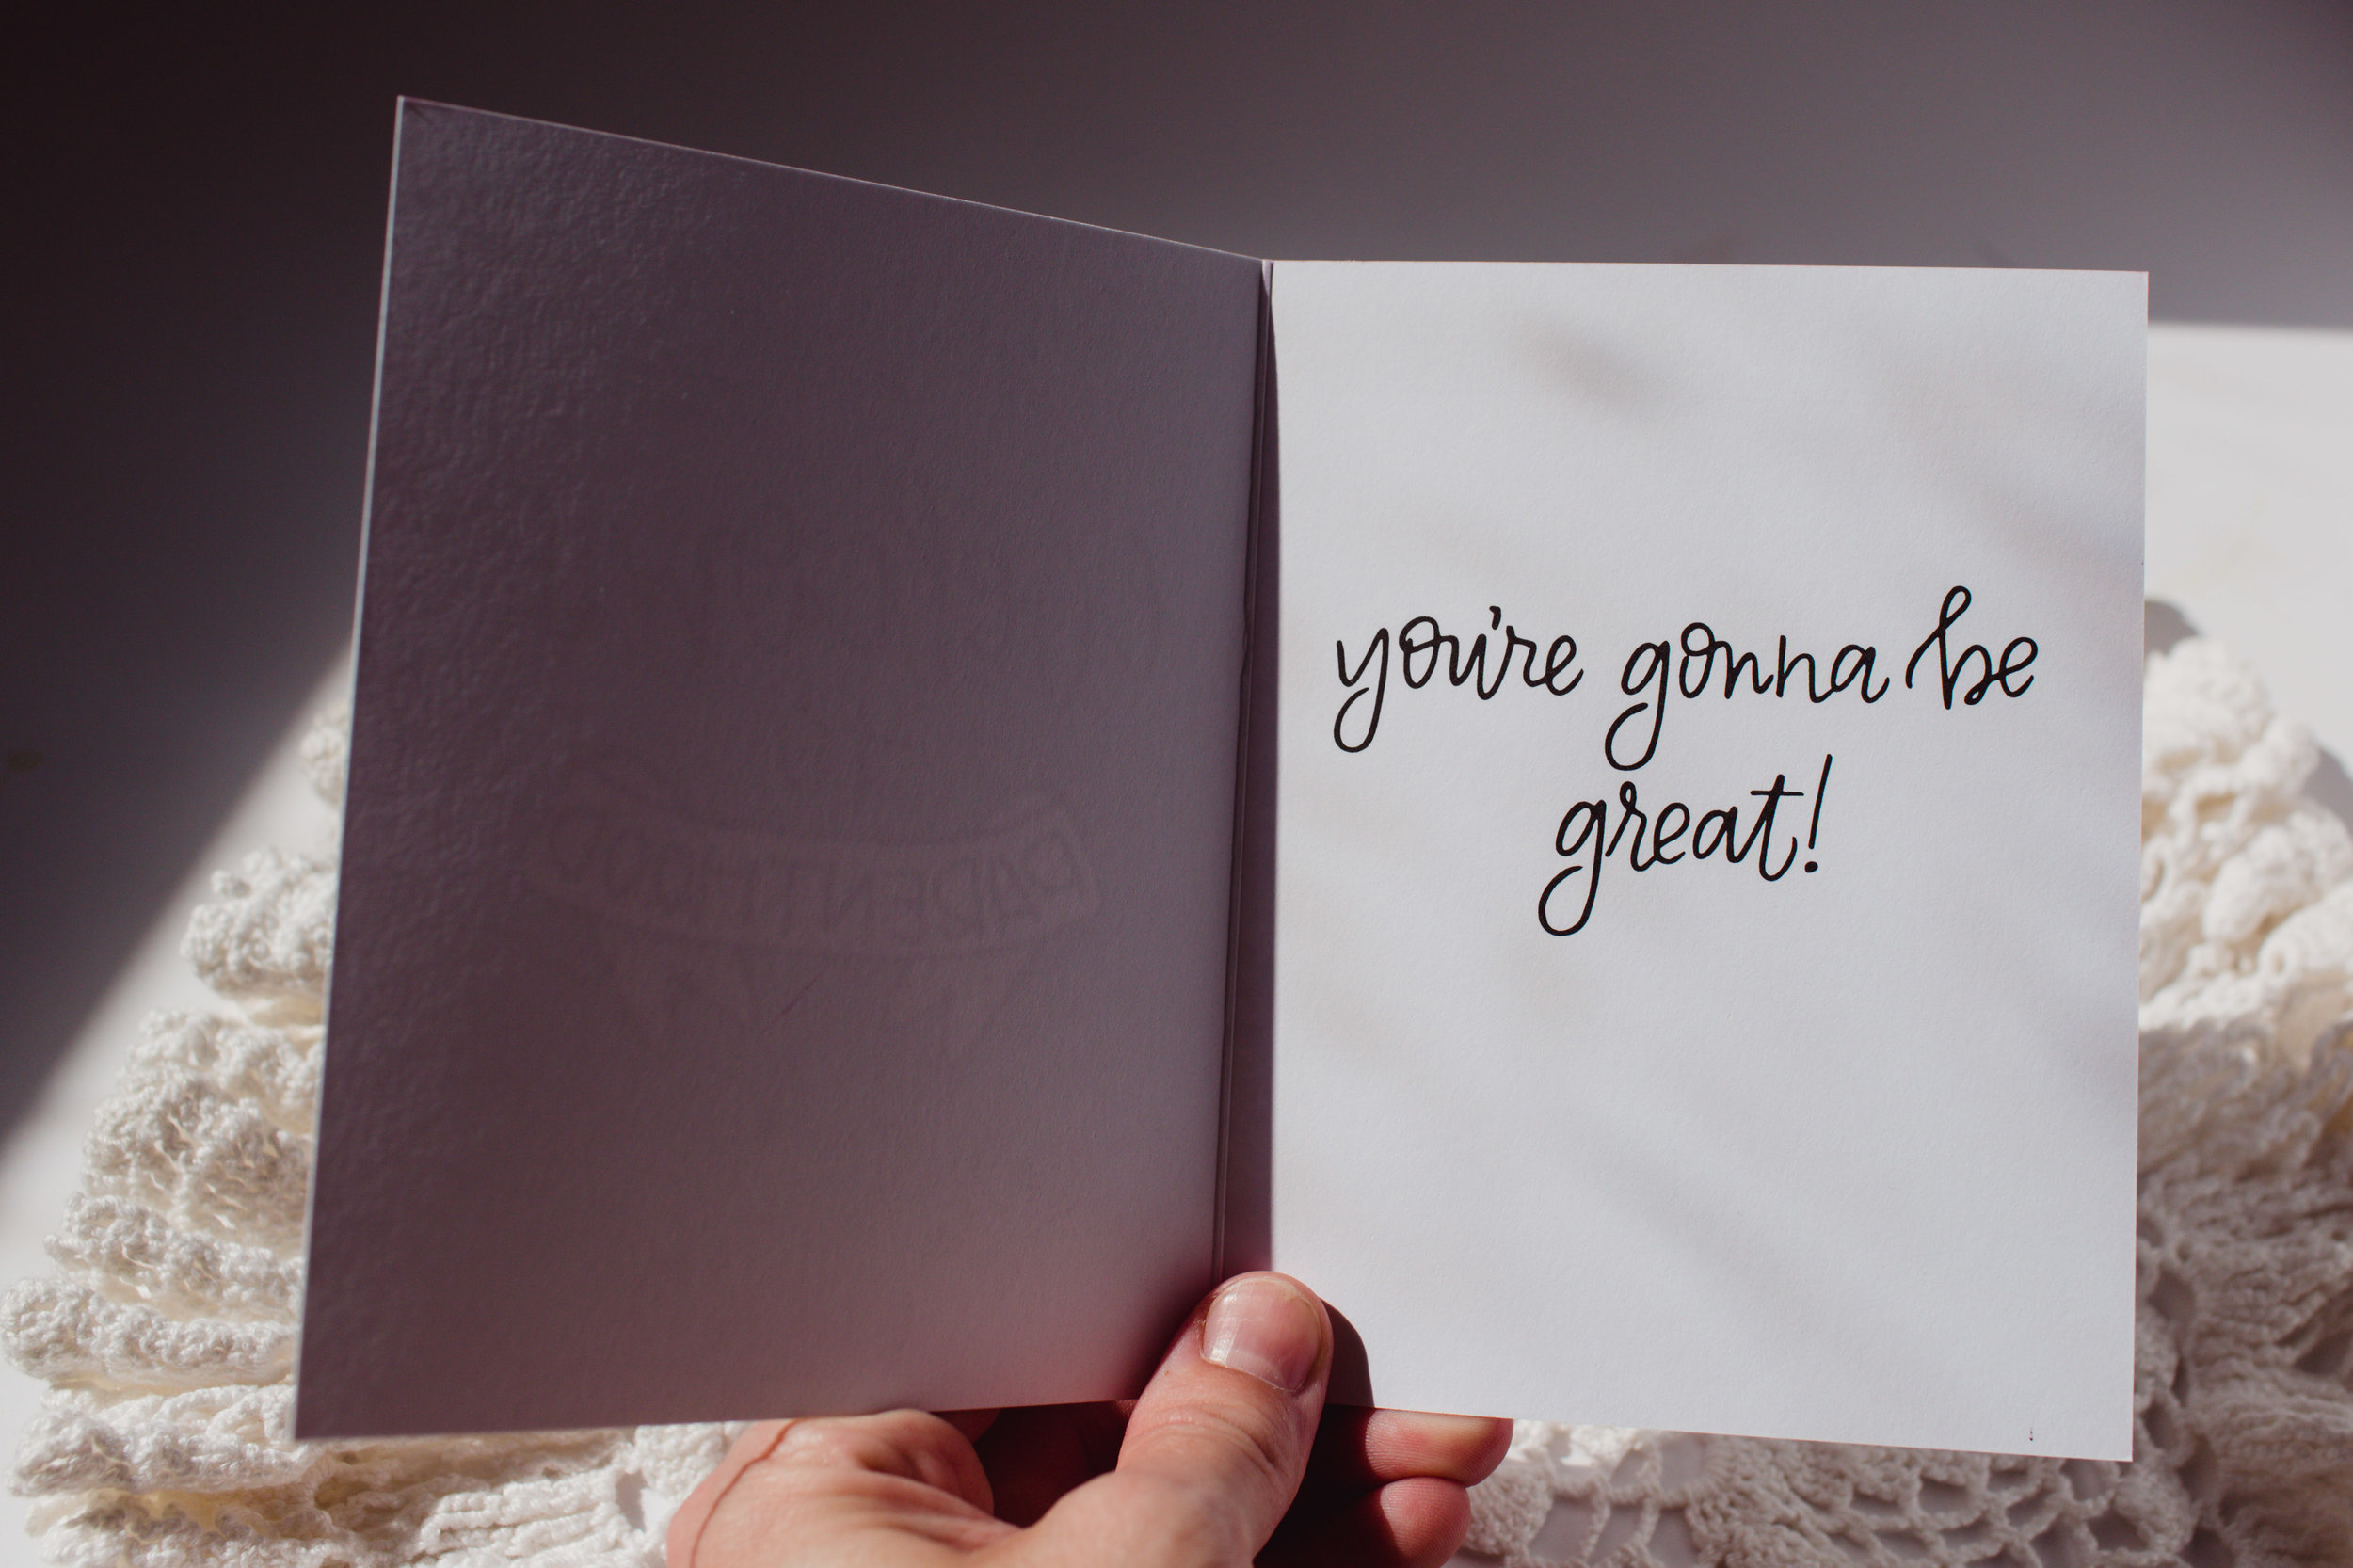 you're gonna be
great!